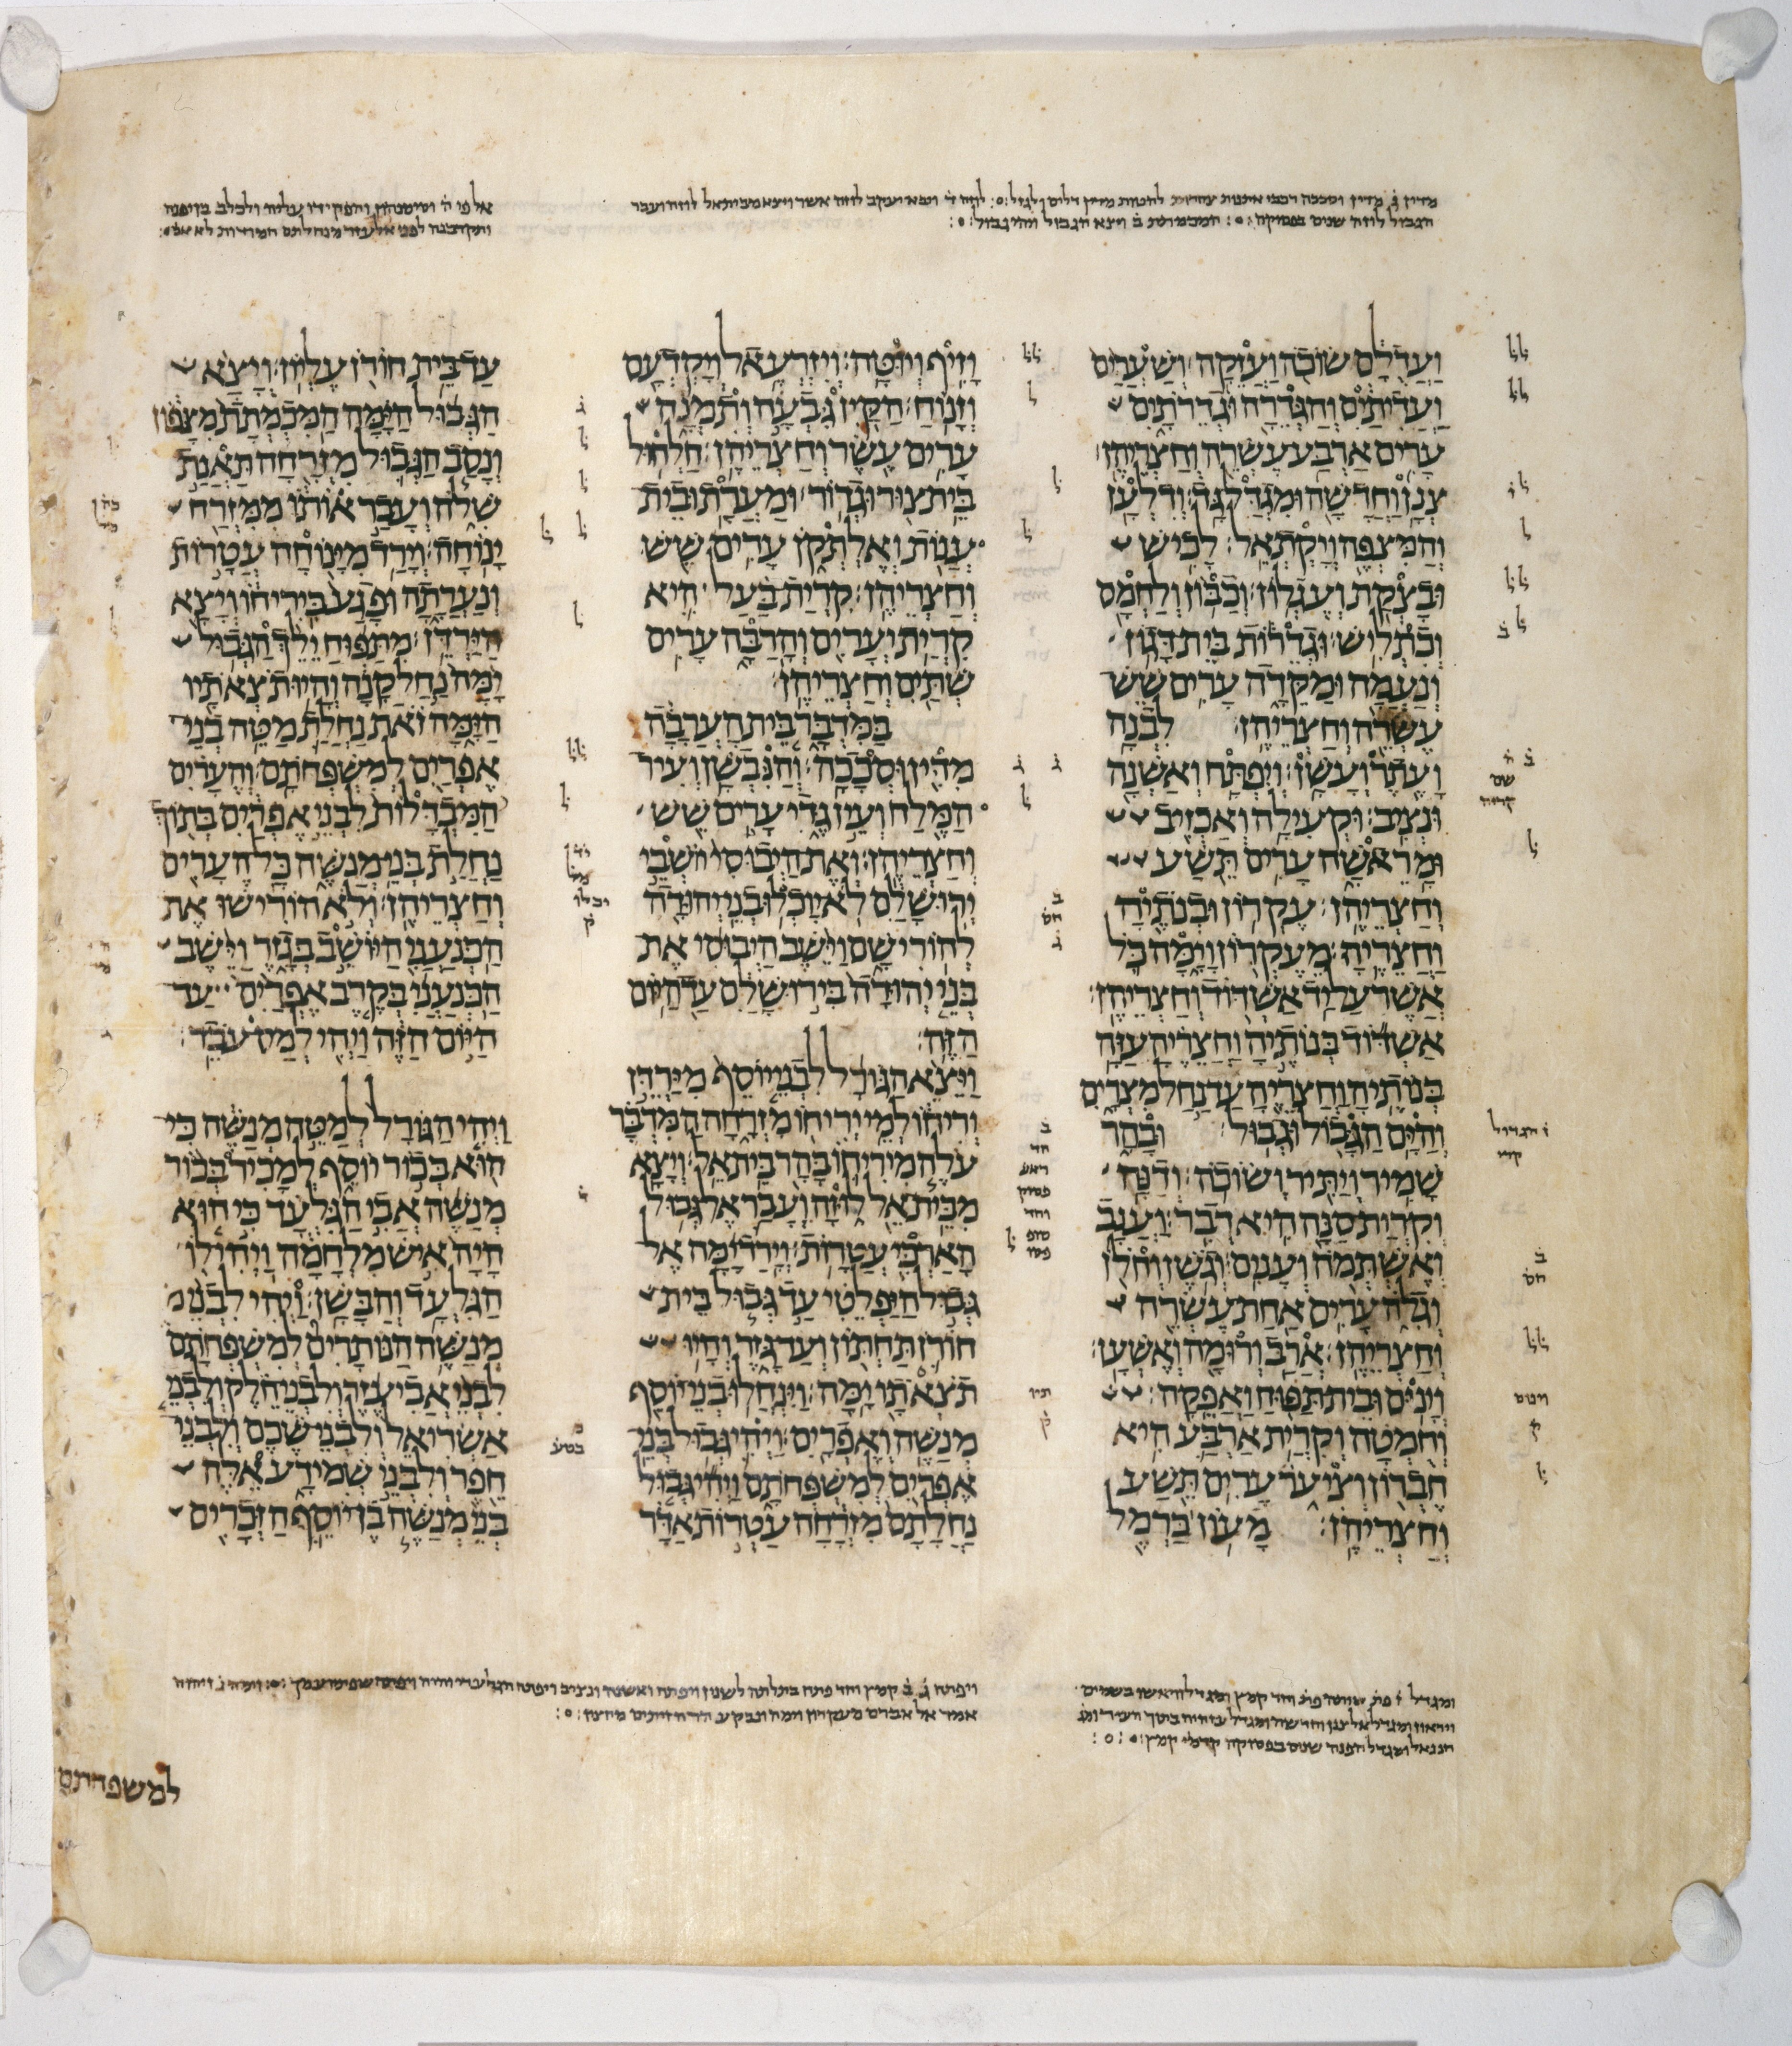 מדין ג מדין וסככה רכבי אתנות צחרות להטות מדין דלים ולגזל לוזה ד ויבא יעקב לוזה אשר ויצא מביתאל לוזה ועבר
הגבול לוזה שנים בפסוקה המכמתת ב ויצא הגבול ויהי גבול
ועדלם שוכה ועזקה ושערים
ועדיתים והגדרה וגדרתים
ערים ארבע עשרה וחצריהן
צנן וחדשה ומגדל גד ודלען
והמצפה ויקתאל לכיש
ובצקת ועגלון וכבון ולחמס
וכתליש וגדרות בית דגון
ונעמה ומקדה ערים שש
עשרה וחצריהן לבנה
ועתר ועשן ויפתח ואשנה
ונציב וקעילה ואכזיב
ומראשה ערים תשע
וחצריהן עקרון ובנתיה
וחצריה מעקרון וימה כל
אשר על יד אשדוד וחצריהן
אשדוד בנותיה וחצריה עזה
בנותיה וחצריה עד נחל מצרים
והים הגבול וגבול ובהר
שמיר ויתיר ושוכה ודנה
וקרית סנה היא דבר וענב
ואשתמה וענים וגשן וחלן
וגלה ערים אחת עשרה
וחצריהן ארב ורומה ואשען
וינים ובית תפוח ואפקה
וחמטה וקרית ארבע היא
חברון וציער ערים תשע
וחצריהן מעון כרמל
וזיף ויוטה ויזרעאל ויקדעם
וזנוח הקין גבעה ותמנה
ערים עשר וחצריהן חלחול
בית צור וגדור ומערת ובית
ענות ואלתקן ערים שש
וחצריהן קרית בעל היא
קרית יערים והרבה ערים
שתים וחצריהן
במדבר בית הערבה
מדין וסככה והנבשן ועיר
המלח ועין גדי ערים שש
וחצריהן ואת היבוסי יושבי
ירושלם לא יוכלו בני יהודה
להורישם וישב היבוסי את
בני יהודה בירושלם עד היום
הזה
ויצא הגורל לבני יוסף מירדן
יריחו למי יריחו מזרחה המדבר
עלה מיריחו בהר ביתאל ויצא
מביתאל לוזה ועבר אל גבול
הארכי עטרות וירד ימה אל
גבול היפלטי עד גבול בית
חורן תחתון ועד גזר והיו
תצאתו ימה וינחלו בני יוסף
מנשה ואפרים ויהי גבול בני
אפרים למשפחתם ויהי גבול
נחלתם מזרחה עטרות אדר
אלפי ה והפקידו עליה ולכלב בן יפנה
ותקרבנה לפני אלעזר מנחלתם
עד בית חורן עליון ויצא
הגבול הימה המכמתת מצפון
ונסב הגבול מזרחה תאנת
שלה ועבר אותו ממזרח
ינוחה וירד מינוחה עטרות
ונערתה ופגע ביריחו ויצא
הירדן מתפוח ילך הגבול
ימה נחל קנה והיו תצאתיו
הימה זאת נחלת מטה בני
אפרים למשפחתם והערים
המבדלות לבני אפרים בתוך
נחלת בני מנשה כל הערים
וחצריהן ולא הורישו את
הכנעני היושב בגזר וישב
הכנעני בקרב אפרים עד
היום הזה ויהי למס עבד
ויהי הגורל למטה מנשה כי
הוא בכור יוסף למכיר בכור
מנשה אבי הגלעד כי הוא
היה איש מלחמה ויהי לו
הגלעד והבשן ויהי לבני
מנשה הנותרים למשפחתם
לבני אביעזר ולבני חלק ולבני
אשריאל ולבני שכם ולבני
חפר ולבני שמידע אלה
בני מנשה בן יוסף הזכרים
ויפתח ואשנה ונציב ויפתח הגלעדי
אמר אל אברם מעקרון וימה
למשפחתם